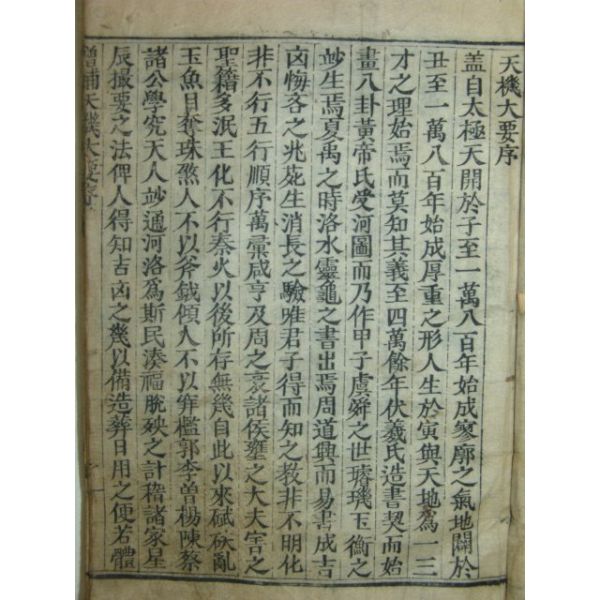 天機大要序
盖自太極天開於子至一萬八百年始成寥廓之氣地闢於
丑至一萬八百年始成厚重之形人生於寅與天地爲一三
才之理始焉而莫知其義至四萬餘年伏羲氏造書契而始
畫八卦黃帝氏受河圖而乃作甲子虞舜之世璿璣玉衡之
妙生焉夏禹之時洛水靈龜之書出焉周道興而易書成吉
凶悔吝之兆庇生消長之驗唯君子得而知之敎非不明化
非不行五行順序萬彙咸亨及周之衰諸侯壅之大夫害之
聖籍多泯王化不行秦火以後所存無幾自此以來碔砆亂
玉魚目奪珠煞人不以斧鉞傾人不以穽檻郭李曾楊陳蔡
諸公學究天人妙通河洛爲斯民湊福脫殃之計稽諸家星
辰撮要之法俾人得知吉凶之幾以備造葬日用之便若體
增補天機大要